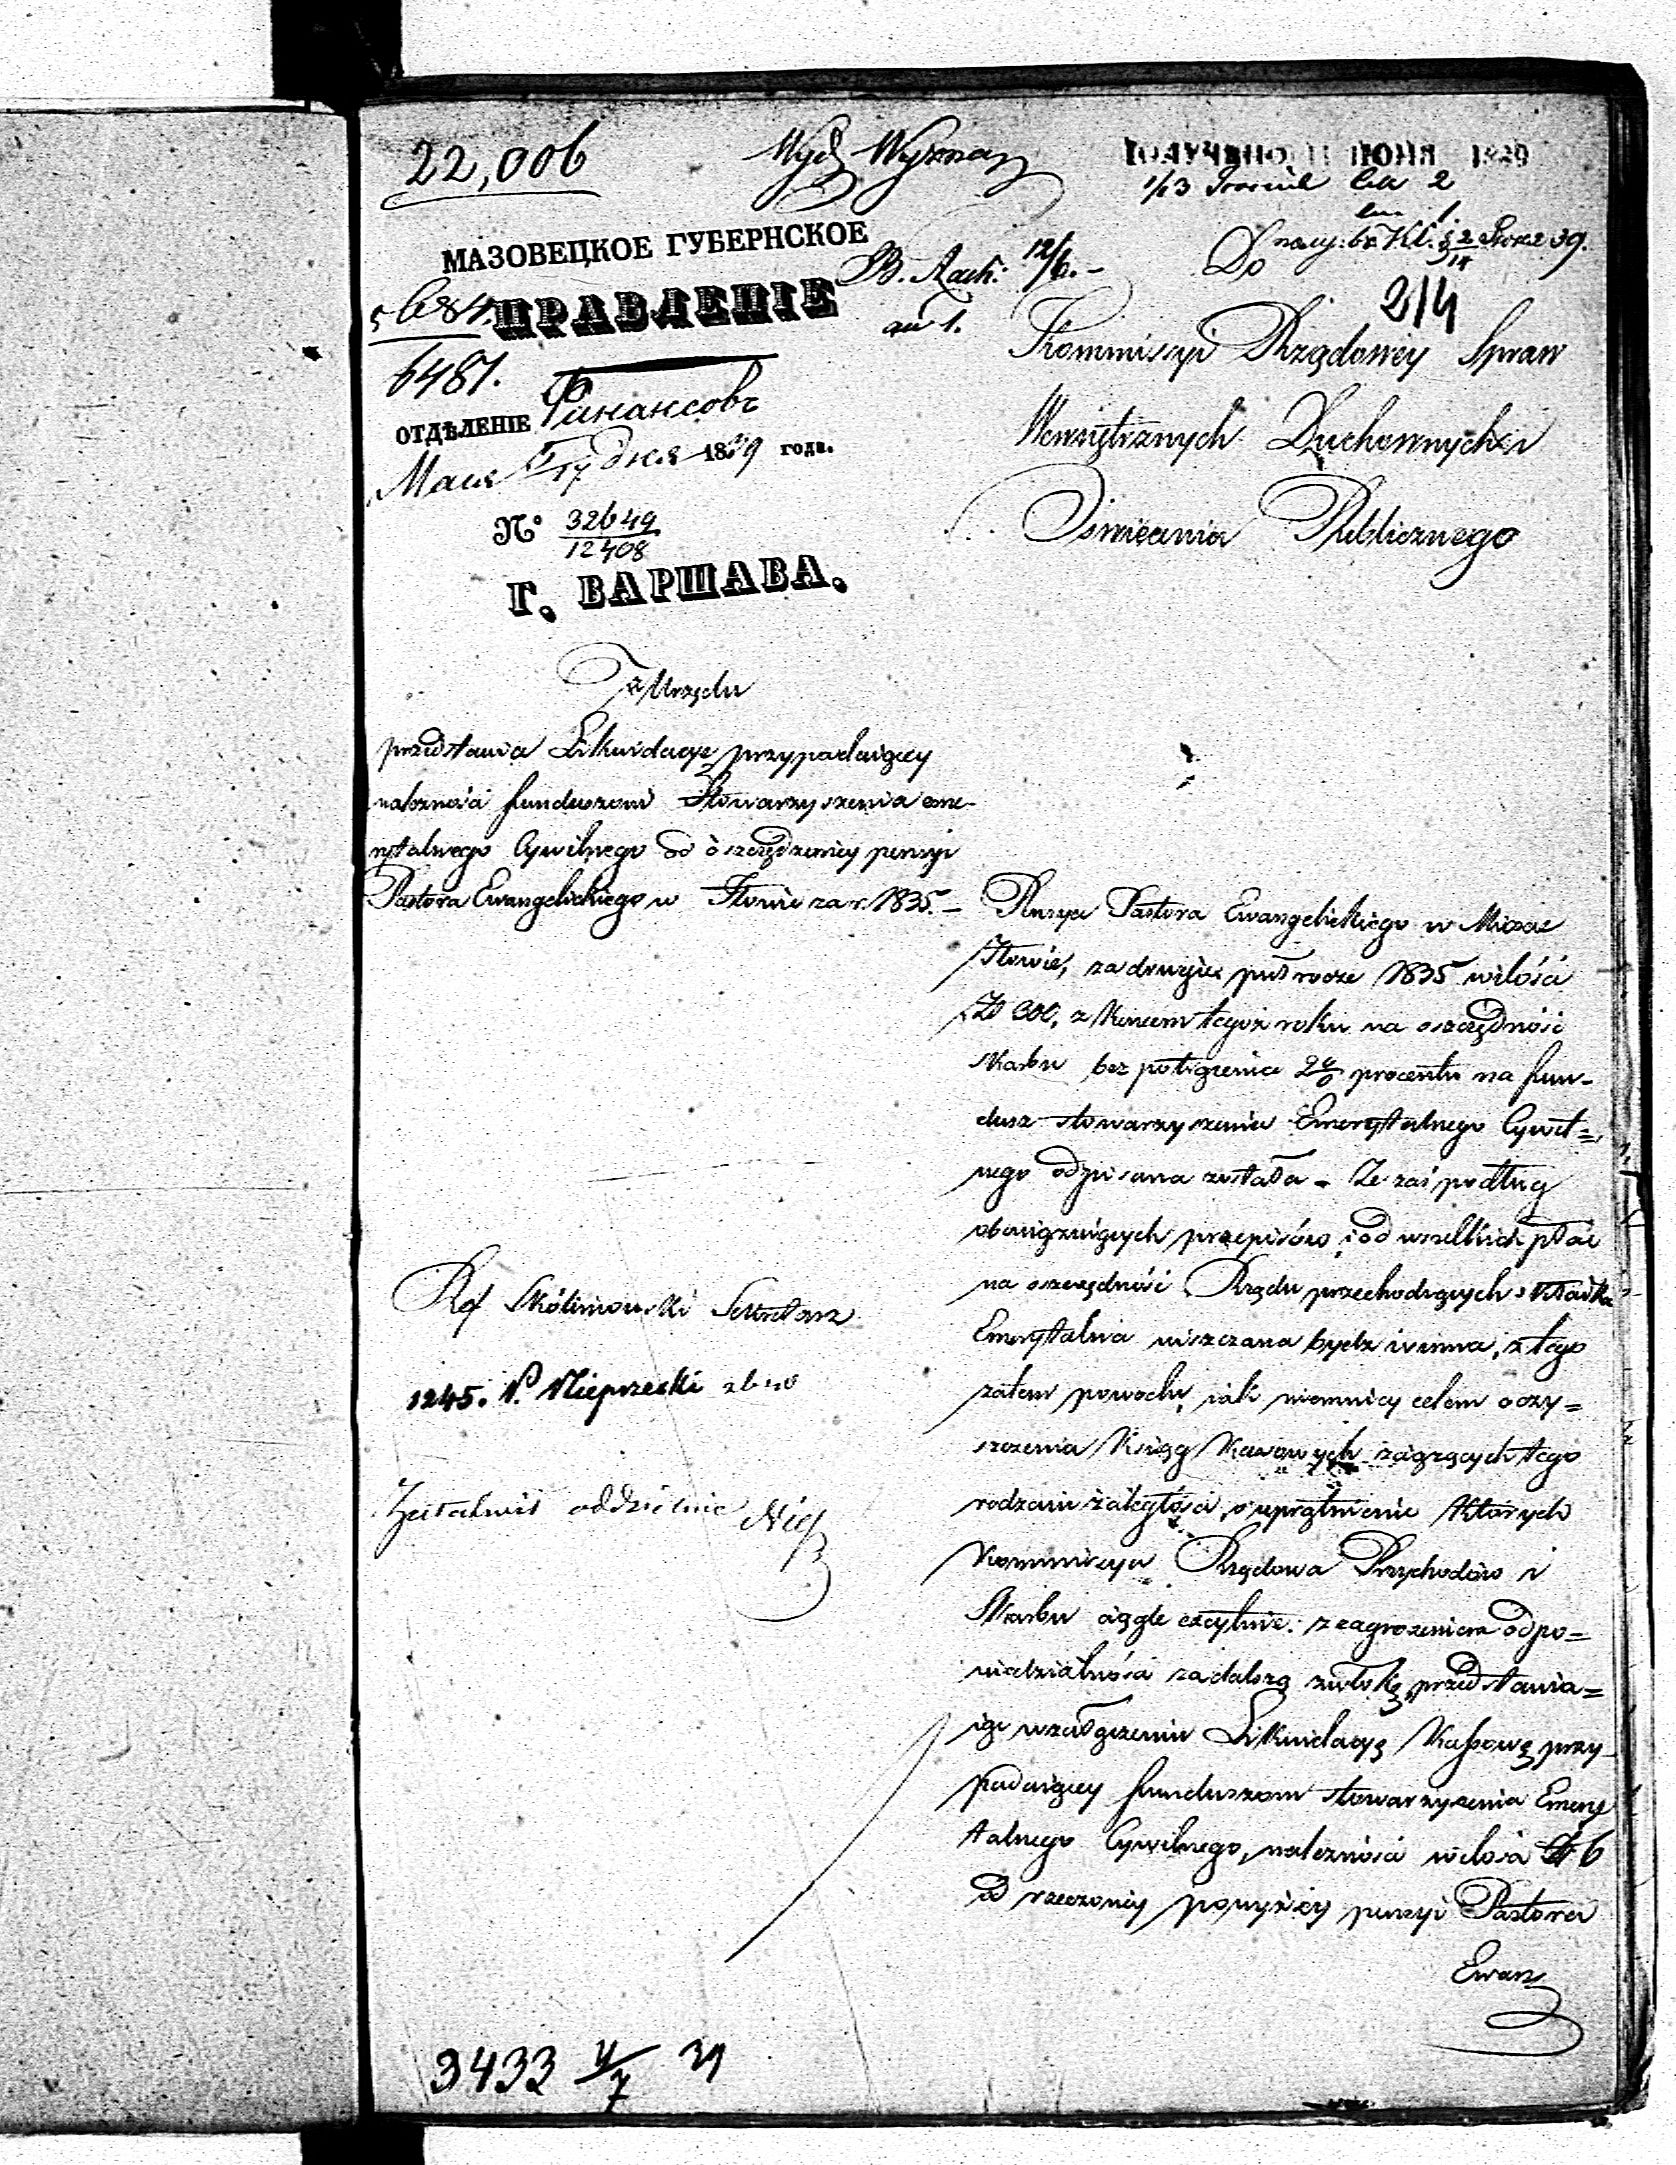 22,006
Wydz Wyznań
ПОЛУЧЕНО 11 ІЮНЯ 1839
МАЗОВЕЦКОЕ ГУБЕРНСКОЕ
ПРАВЛЕНІЕ
B. Rach: 12/6. –
6487.
ОТДѢЛЕНІЕ Финансовъ
Мая 5/17 дня 1839 года.
№ 32649/12408
Г. ВАРШАВА.
Do
214
Kommissyi Rządowey Spraw
Wewnętrznych Duchownych i
Oświecenia Publicznego
Z Urzędu
przedstawia Likwidacyę przypadaiącey
należności funduszowi Stowarzyszenia eme-
rytalnego Cywilnego od oszczędzoney pensyi
Pastora Ewangelickiego w Iłowie za r. 1835. –
Pensya Pastora Ewangelickiego w Mieście
Iłowie, za drugie półrocze 1835 w ilości
Zł 300, z końcem tegoż roku na oszczędność
Skarbu bez potrącenia 2% procentu na fun-
dusz stowarzyszenia Emerytalnego Cywil=
nego odpisana została – Że zaś podług
obowiązuiących przepisów i od wszelkich płac
na oszczędność Rządu przechodzących składka
Emerytalna uiszczana bydź winna, z tego
zatem powodu, iak niemniey celem oczy=
szczenia Ksiąg Kassowych zaległych tego
rodzaiu zaległości, o uprzątnienie których
Kommissya Rządowa Przychodów i
Skarbu ciągle z zagrożeniem odpo=
wiedzialności za dalszą zwłokę, przedstawia=
iąc w załączeniu Likwidacyę Kassową przy-
padaiącey funduszom stowarzyszenia Emery
talnego Cywilnego, należności w ilości Zł 6
od rzeczoney powyżey pensyi Pastora
Ewan
Ref Skólimowski Sekretarz
1245.
oddzielnie
3433 4/7 39